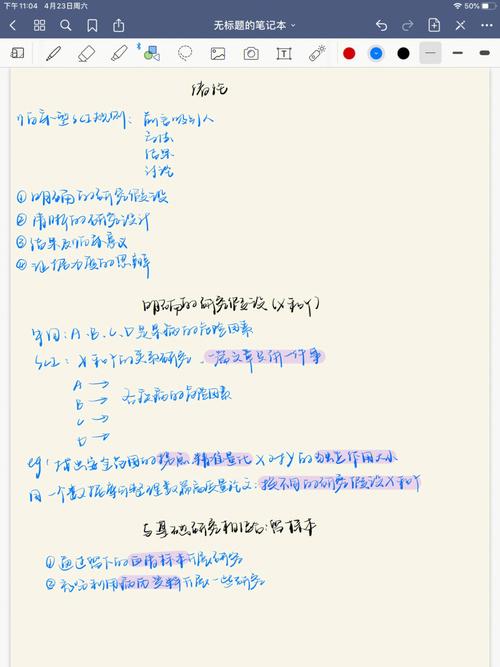 下午11:04 4月23日周六 50%
无标题的笔记本
T
绪论
临床型SCI规则: 前言吸引人
方法
结果
讨论
①明确的研究假设
②清晰的研究设计
③结果及临床意义
④证据力度的思辨
明确的研究假设(X和Y)
中国:A、B、C、D是某病的危险因素
SCI: X和Y的关系研究、一篇文章只讲一件事
A →
B → 各较病的危险因素
C →
D →
eg: 找出安全范围的拐点、精准量化X对Y的独立作用大小
用一个数据库可整理数篇高质量论文:找不同的研究假设X和Y
与基础研究相结合:留样本
①通过留下的血清样本开展研究
②利用病历资料开展一些研究